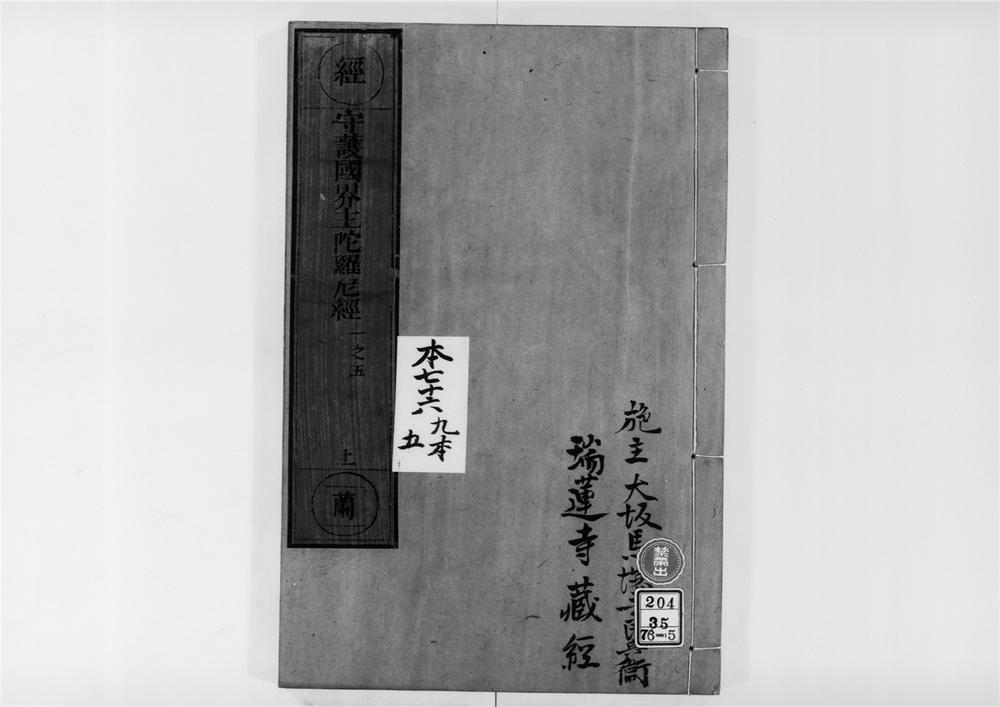 施主大坂馬場
兵衛
瑞蓮寺藏經
禁帶出
204
35
76-5
本七十六
九本
五
經
守護國界主陀羅尼經
一之五
上
蘭